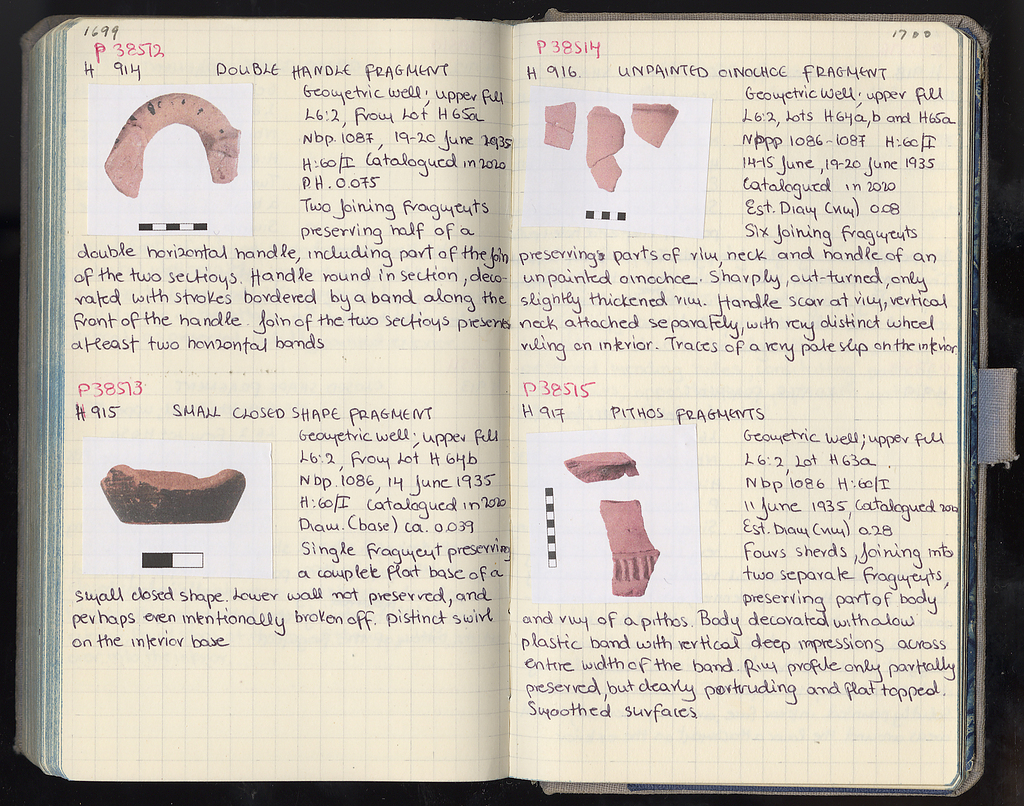 1699
P 38512
H 914 DOUBLE HANDLE FRAGMENT
Geometric well; upper fill
L6:2, From Lot H65a
Nbp. 1087, 19-20 June 1935
H:60/I Catalogued in 2020
P.H. 0.075
Two joining fragments
preserving half of a
double horizontal handle, including part of the join
of the two sections. Handle round in section, deco-
rated with strokes bordered by a band along the
front of the handle. Join of the two sections preserves
at least two horizontal bands
P38513
H 915 SMALL CLOSED SHAPE FRAGMENT
Geometric well; upper fill
L6:2, From Lot H 64b
Nbp. 1086, 14 June 1935
H:60/I Catalogued in 2020
Diam. (base) ca. 0.039
Single fragment preserving
a complete flat base of a
small closed shape. Lower wall not preserved, and
perhaps even intentionally broken off. Distinct swirl
on the interior base
1700
P38514
H 916. UNPAINTED OINOCHOE FRAGMENT
Geometric well; upper fill
L6:2, Lots H64a,b and H65a
Nbpp 1086-1087 H:60/I
14-15 June, 19-20 June 1935
Catalogued in 2020
Est. Diam (rim) 0.08
Six joining fragments
preserving parts of rim, neck and handle of an
unpainted oinochoe. Sharply, out-turned, only
slightly thickened rim. Handle scar at rim, vertical
neck attached separately, with very distinct wheel
ruling on interior. Traces of a very pale slip on the interior
P38515
H 917 PITHOS FRAGMENTS
Geometric well; upper fill
L6:2, Lot H63a.
Nbp 1086 H:60/I
11 June 1935, Catalogued 2020
Est. Diam (rim) 0.28
Fours sherds, joining into
two separate fragments,
preserving part of body
and rim of a pithos. Body decorated with a low
plastic band with vertical deep impressions across
entire width of the band. Rim profile only partially
preserved, but clearly portruding and flat topped.
Smoothed surfaces